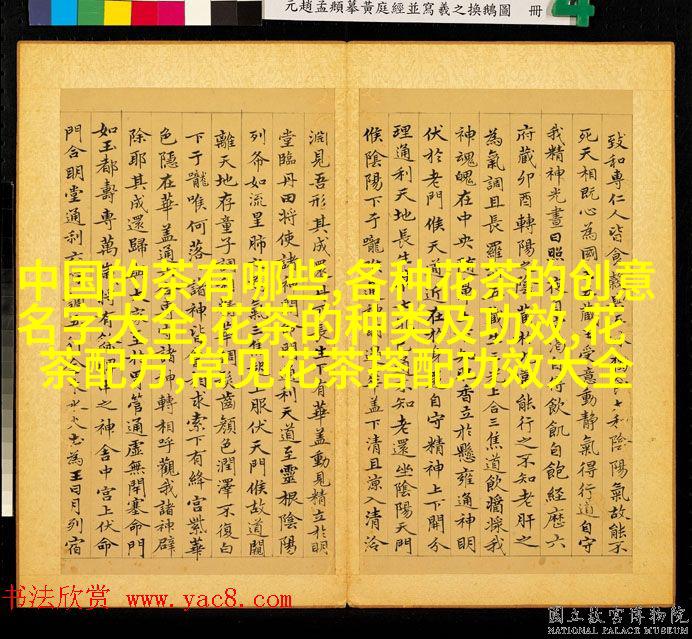 元趙孟頫摹黃庭經並寫羲之換鵝圖 冊
致和專仁人皆食 和陰陽氣故能不
死天相既心為國 藏 受意動靜氣得行道自守
我精神光晝日照 得飲飢自飽經歷六
府藏卯酉轉陽 能行之不知老肝之
為氣調且長羅 上合三焦道飲醬漿我
神魂魄在中央 香立於懸雍通神明
伏於老門候天道近在於 自守精神上下開分
理通利天地長生 知老還坐陰陽天門
候陰陽下于嚨 蓋下清且涼入清泠
淵見吾形其成 生下有華蓋動見精立於明
堂臨丹田將使諸神 利天道至靈根陰陽
列布如流星肺 氣三焦 上服伏天門候故道闚
離天地存童子調 調髮齒顏色潤澤不復白
下于嚨喉何落 諸神皆 求索下有絳宮紫華
色隱在華蓋通 諸神轉相呼觀我諸神辟
除耶其成還歸 管通虛無閉塞命門
如玉都壽專萬歲將有 之神舍中宮上伏命
門合明堂通利六 五 水火 為王日月列宿
中国的茶有哪些,各种花茶的创意
名字大全,花茶的种类及功效,花
茶配方,常见花茶搭配功效大全
书法欣赏 www.yac8.com
國立故宮博物院
NATIONAL PALACE MUSEUM